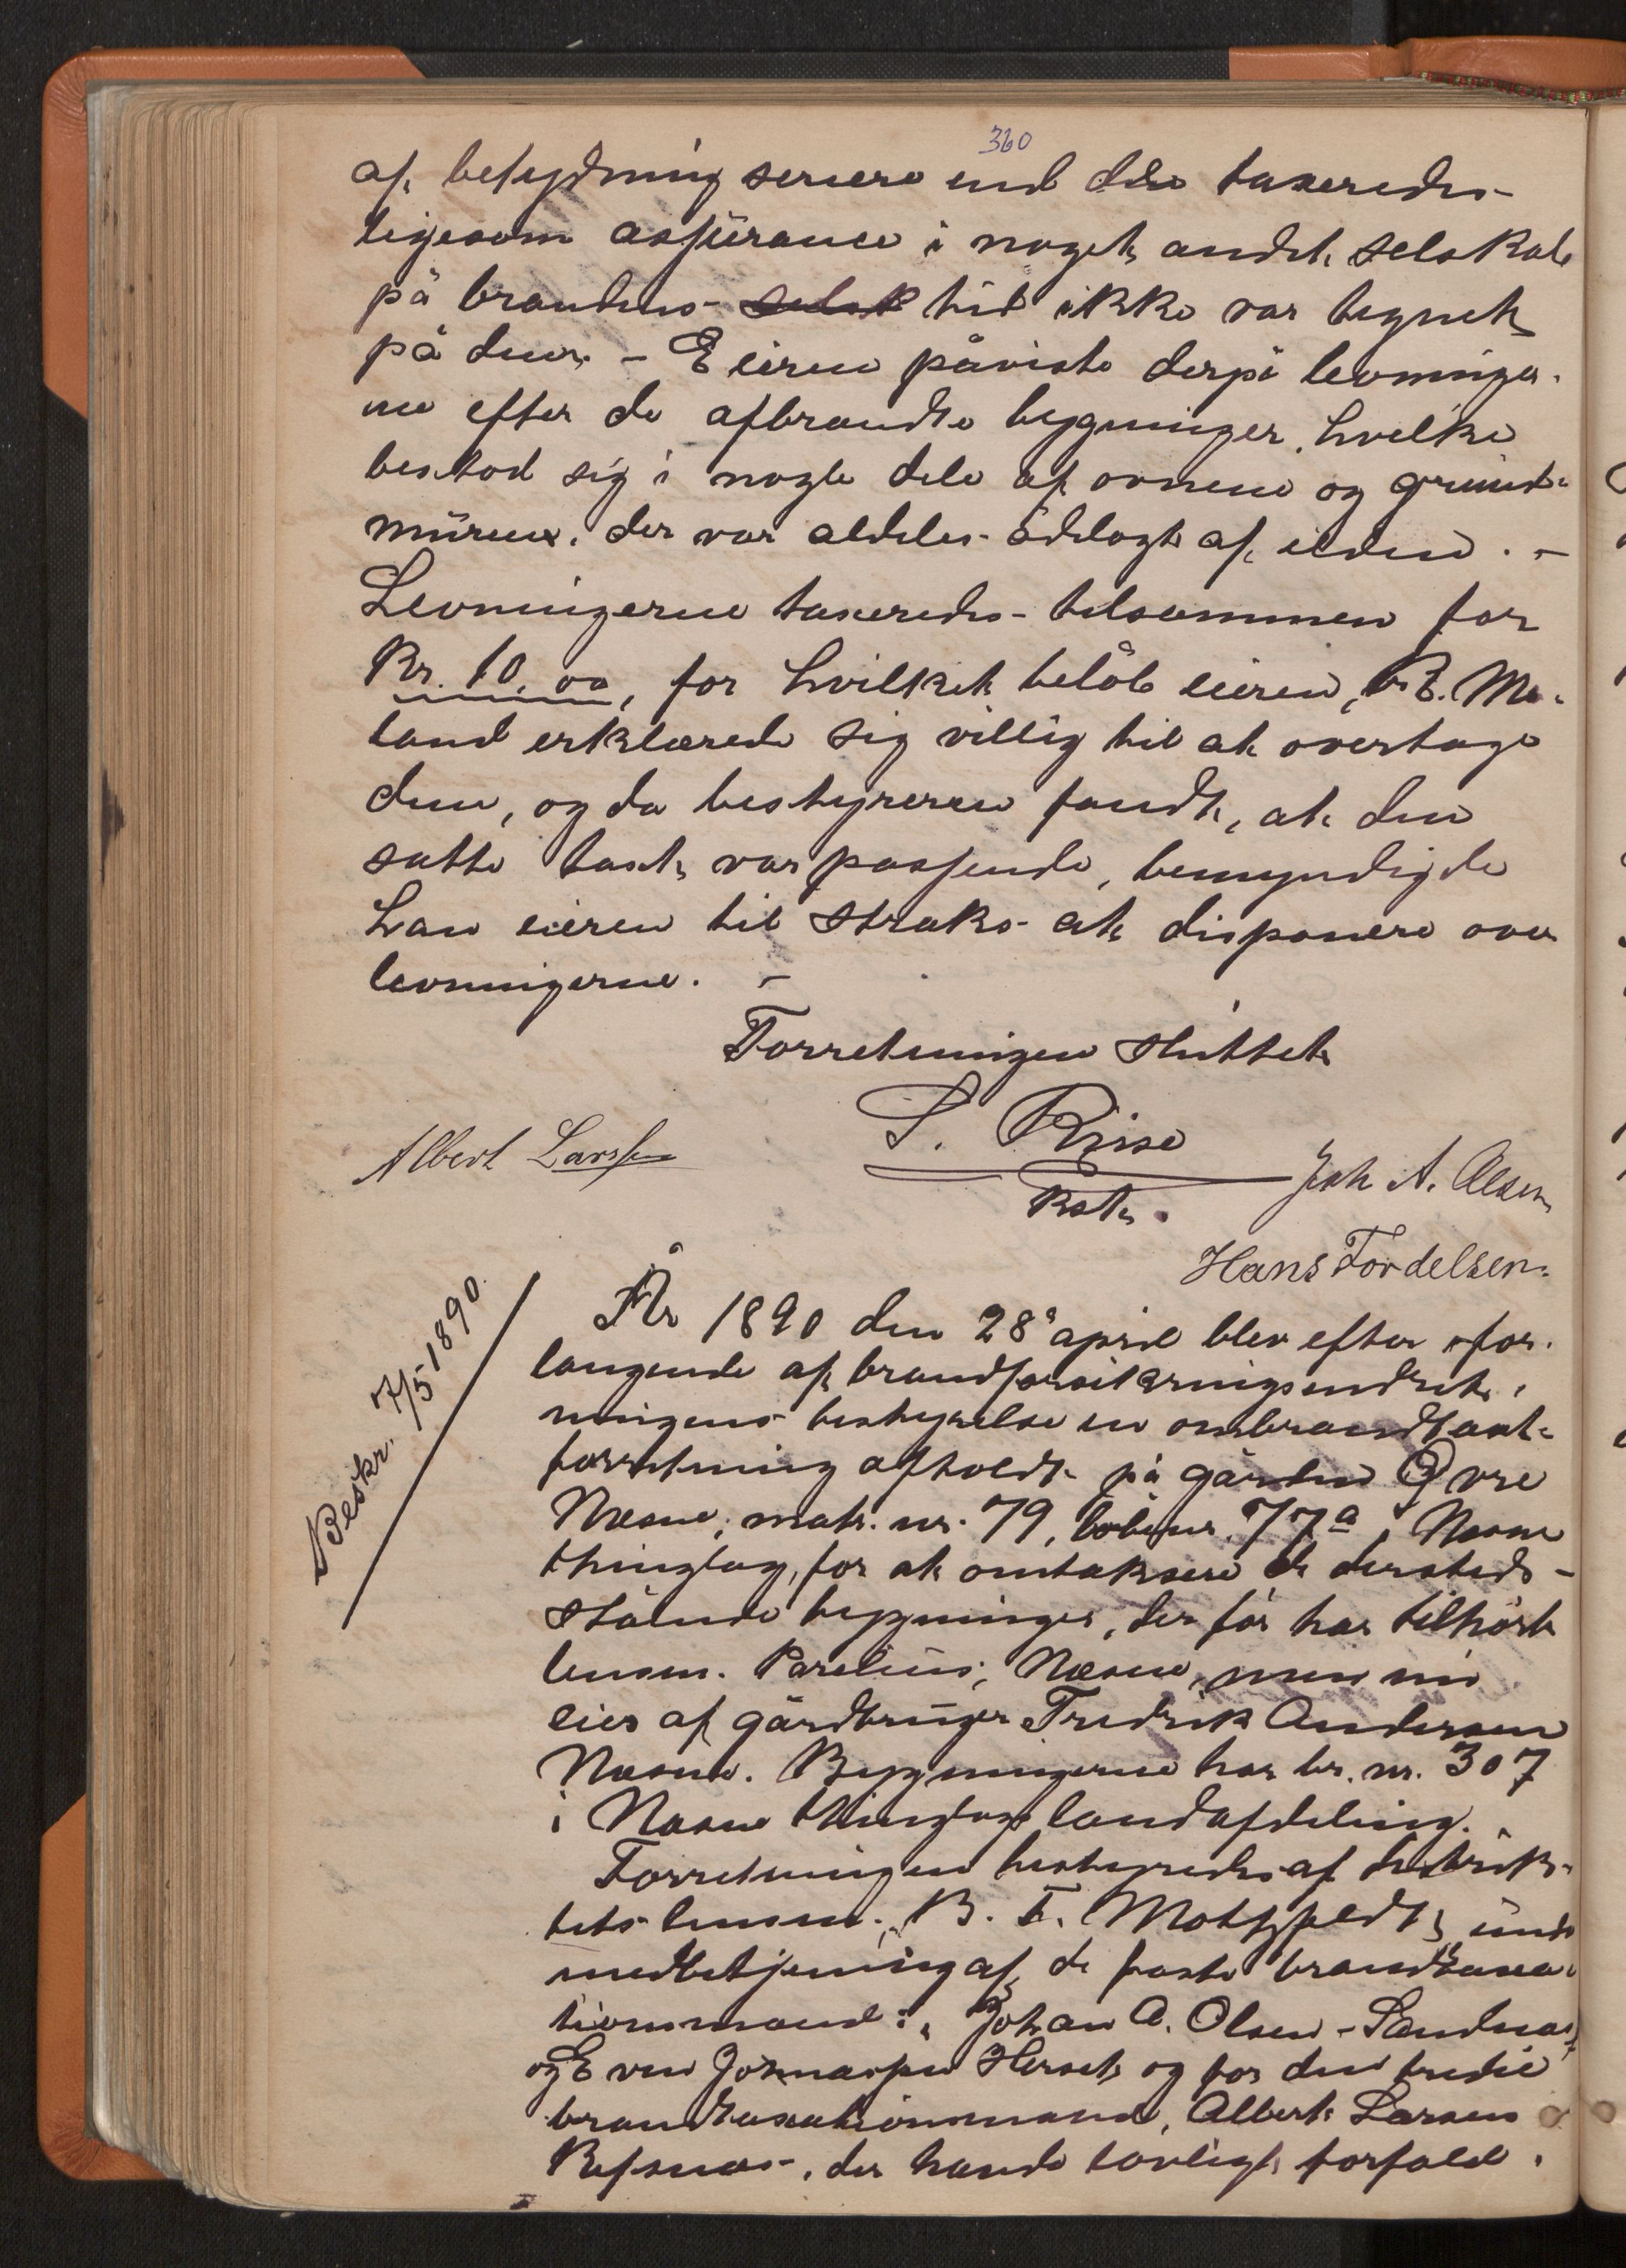 360
af betydning senere end den taxeredes
ligesom assürance i noget andet selskab
på brandens selsk tid ikke var tegnet
på dem. – Eieren påviste derpå levninger-
ne efter de afbrændte bygninger, hvilke
bestod sig i nogle dele af ovnene og gründ-
mürene, der var aldeles ödelagt af ilden. –
Levningerne taxeredes tilsammen for
Kr. 10,00, for hvilket belöb eieren, B. Me-
land erklærede sig villig til at overtage
dem, og da bestyreren fandt, at den
satte taxt var passende, bemyndigede
han eieren til straks at disponere over
levningerne. –
Forretningen sluttet
S. Riise
kst.
Albert Larssen
Joh A. Olsen
Hans Fordelsen.
Beskr. 7/5 1890.
År 1890 den 28de april blev efter for-
langende af brandforsikringsindret-
ningens bestyrelse en ombrandtaxt-
forretning afholdt på gården Övre
Næsne, matr. nr. 79, löbenr. 77a i Næsne
thinglag, for at omtaksere de dersteds
stående bygninger, der för har tilhört
lensm. Parelius, Næsne, men nü
eies af gårdbrüger Fredrik Andersen
Næsne. Bygningerne har br. nr. 307
i Næsne thinglags landafdeling.
Forretningen bestyredes af distrik-
tets lensm. B. T. Motzfeldt, ünder
medbetjening af de faste brandtaxa-
tionsmænd: Johan A. Olsen - Sandnæs,
og Even Jonassen Herset og for den tredie
brandtaxationsmand, Albert Larsen
Refsnæs, der havde lovligt forfald,